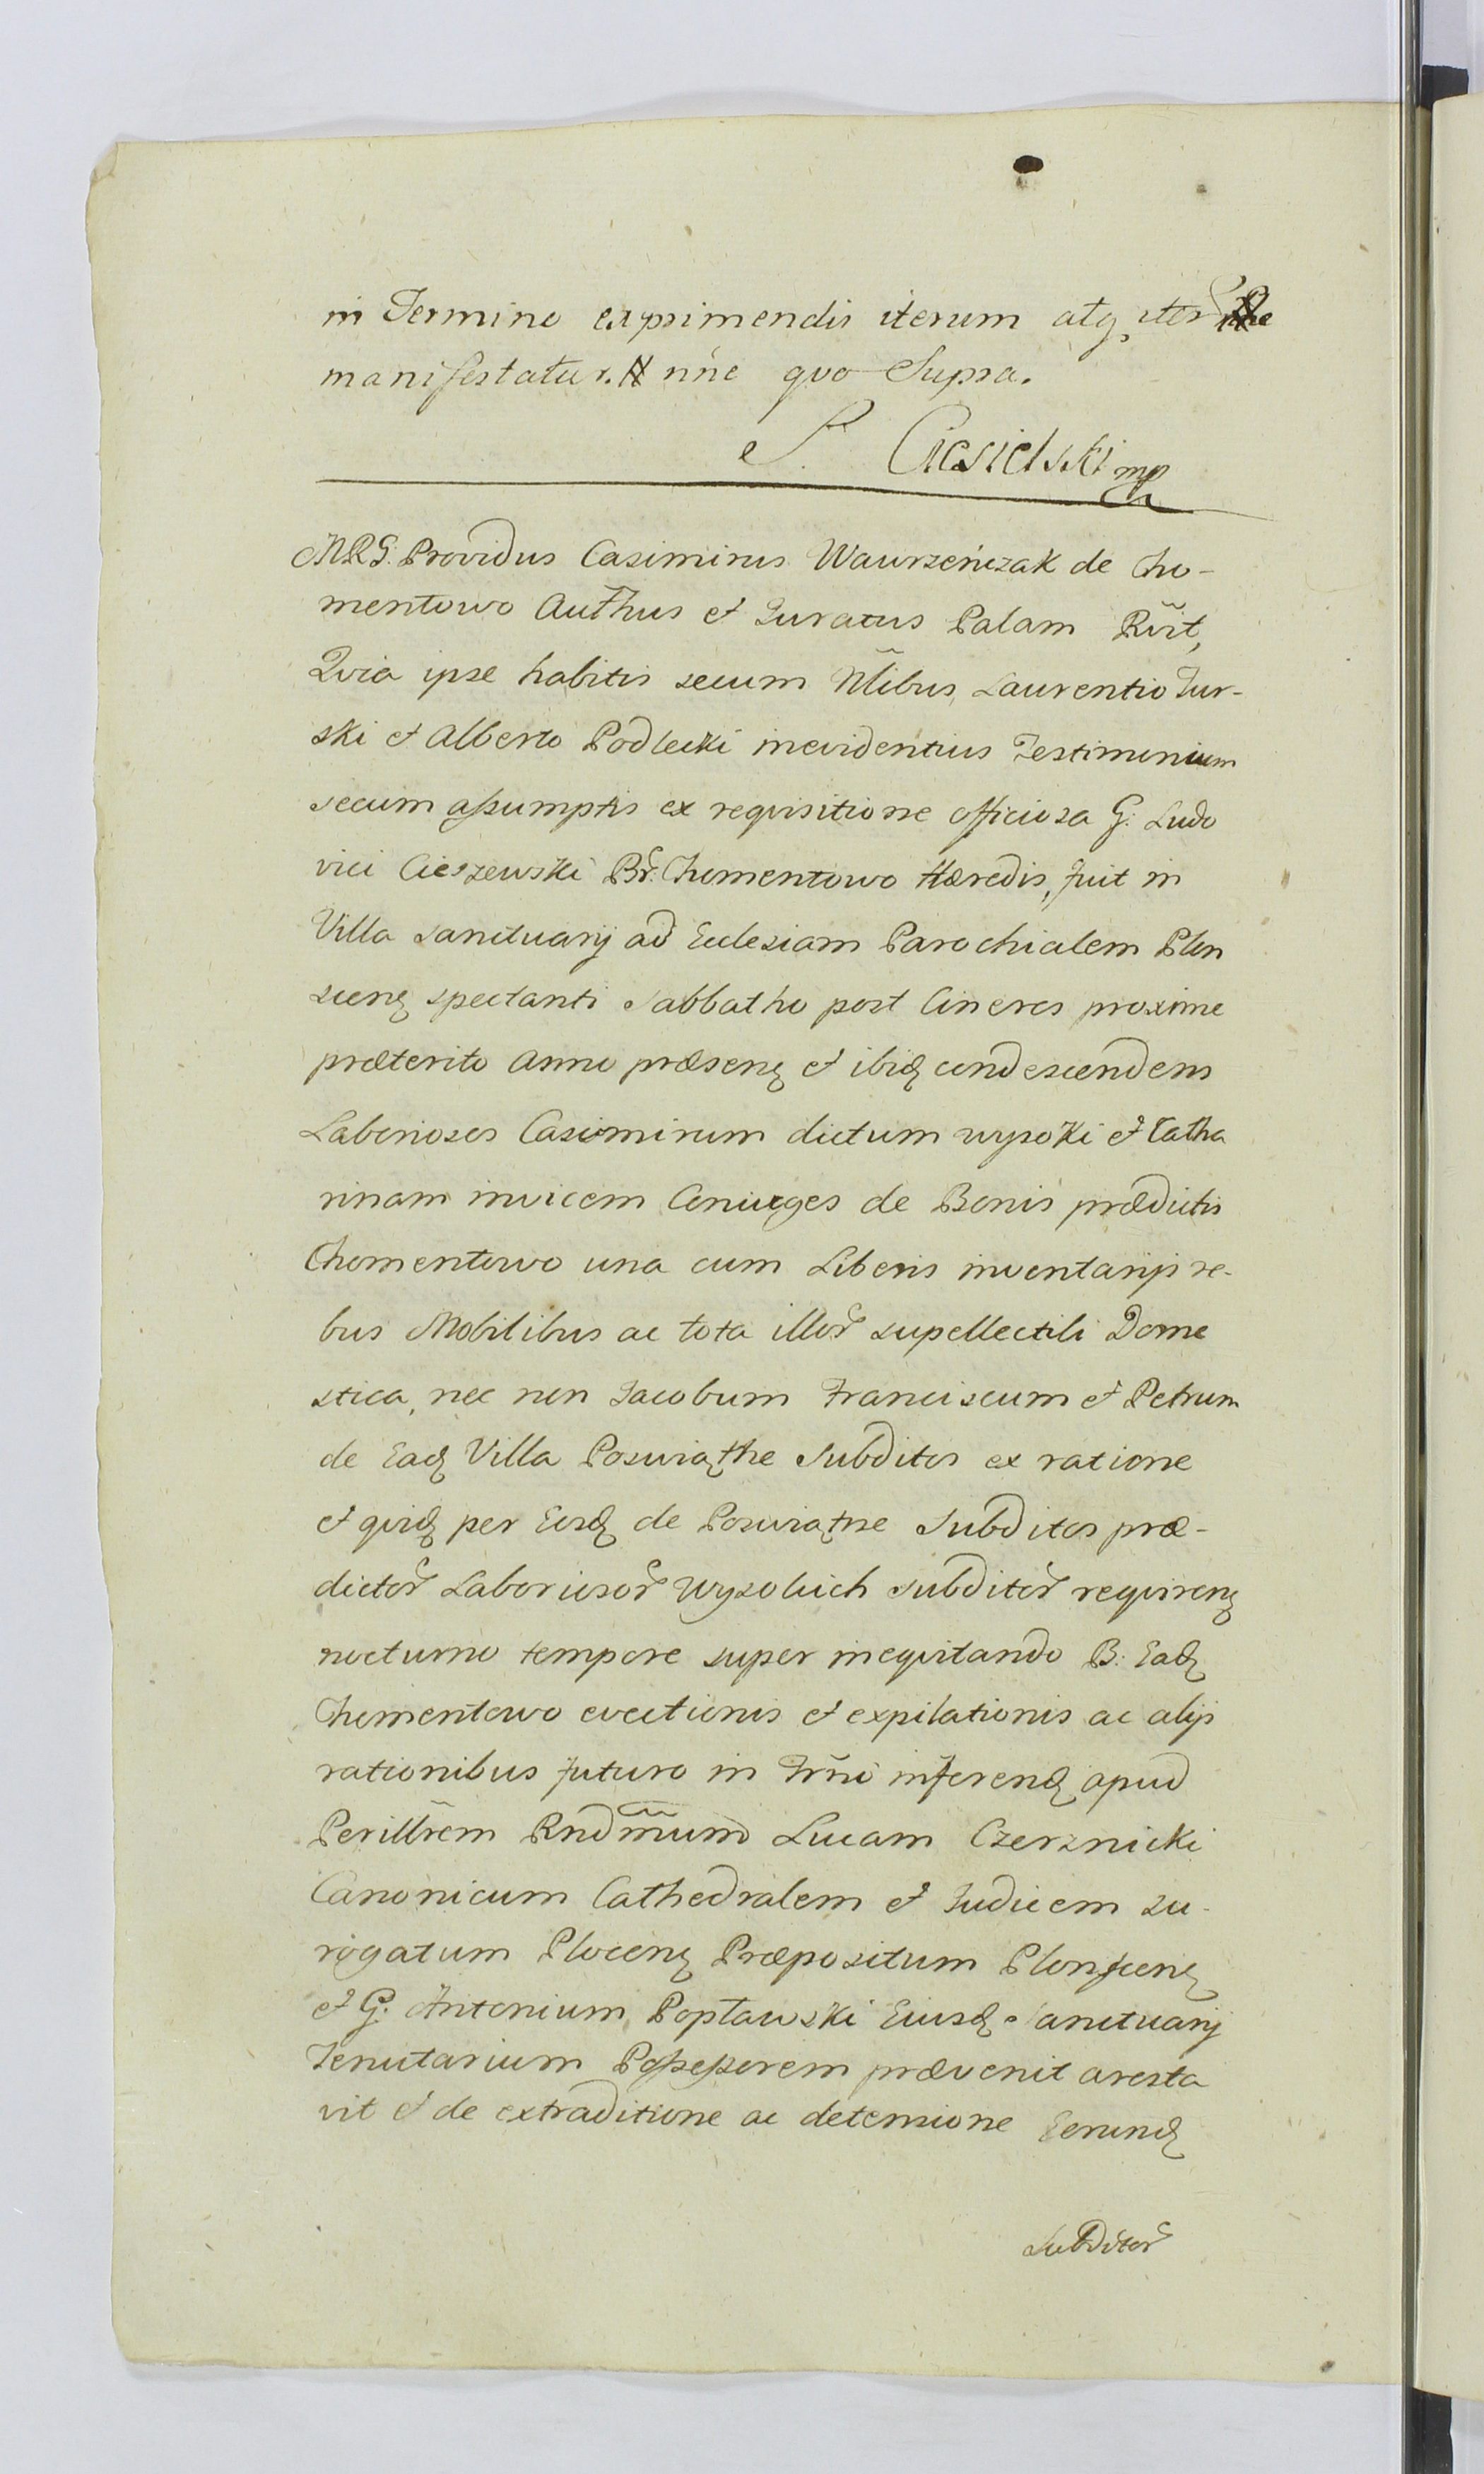 in Termino exprimendis iterum atq iter
manifestatur. nne quo Supra.
S. Ciesielski mp
MRG. Providus Casimirus Wawrzeńczak de Cho-
mentowo Authus et Juratus Palam Rvit,
Qvia ipse habitis secum Nlibus Laurentio Tur-
ski et Alberto Podlecki inevidentius Testimonium
secum assumptis ex reqvisitione officiosa G. Ludo
vici Cieszewski Br. Chomentowo Hæredis, fuit in
Villa Sanctuarij ad Ecclesiam Parochialem Plon
scenq spectanti Sabbatho post Cineres proxime
præterito Anno præsenq et ibiq condescendens
Laboriosos Casimirum dictum wysoki et Catha
rinam invicem Coniuges de Bonis prædictis
Chomentowo una cum Liberis inventarijs re-
bus Mobilibus ac tota illor supellectili Dome
stica, nec non Jacobum Franciscum et Petrum
de Eadq Villa Poswiątne Subditos ex ratione
et qvidq per Eosdq de Poswiątne Subditos præ-
dictor Laboriosor Wysokich Subditor reqvirenq
nocturno tempore super ineqvitando B. Eadq
Chomentowo evectionis et expilationis ac alijs
rationibus futuro in Trni inferendq apud
Perillrem Rndmum Lucam Czerznicki
Canonicum Cathedralem et Judicem Su-
rogatum Plocenq Præpositum Plonscenq
et G. Antonium Popławski Eiusdq Sanctuarij
Tenutarium Possessorem prævenit aresta
vit et de extraditione ac detensione Eorundq
Subditor